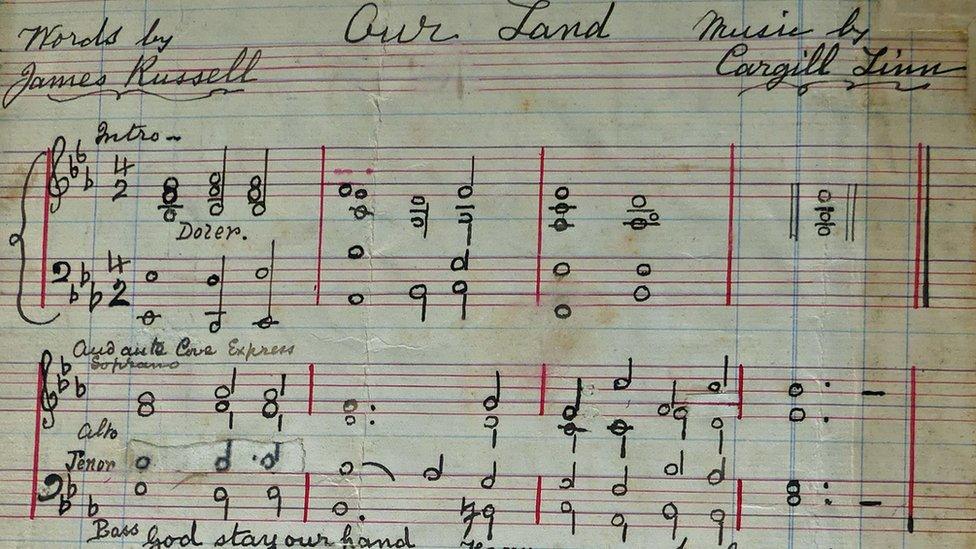 Words by
James Russell
Our Land
Music by
Cargill Linn
Intro -
4
2
Doler.
4
2
Andante Con Express
Soprano
Alto
Tenor
Bass
God stay our hand